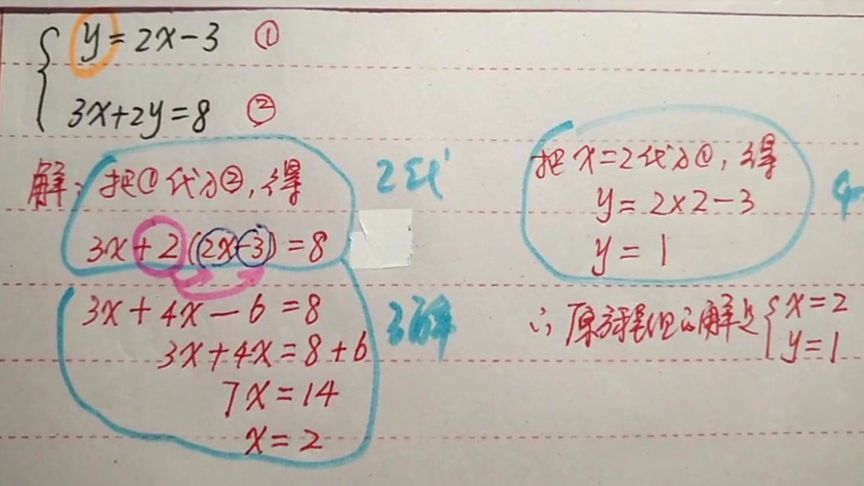 y=2x-3 ①
3x+2y=8 ②
解: 把①代入②,得
3x+2(2x-3)=8
2代
3x+4x-6=8
3x+4x=8+6
7x=14
x=2
3解
把x=2代入①,得
y=2×2-3
y=1
∴原方程组的解是{x=2
y=1